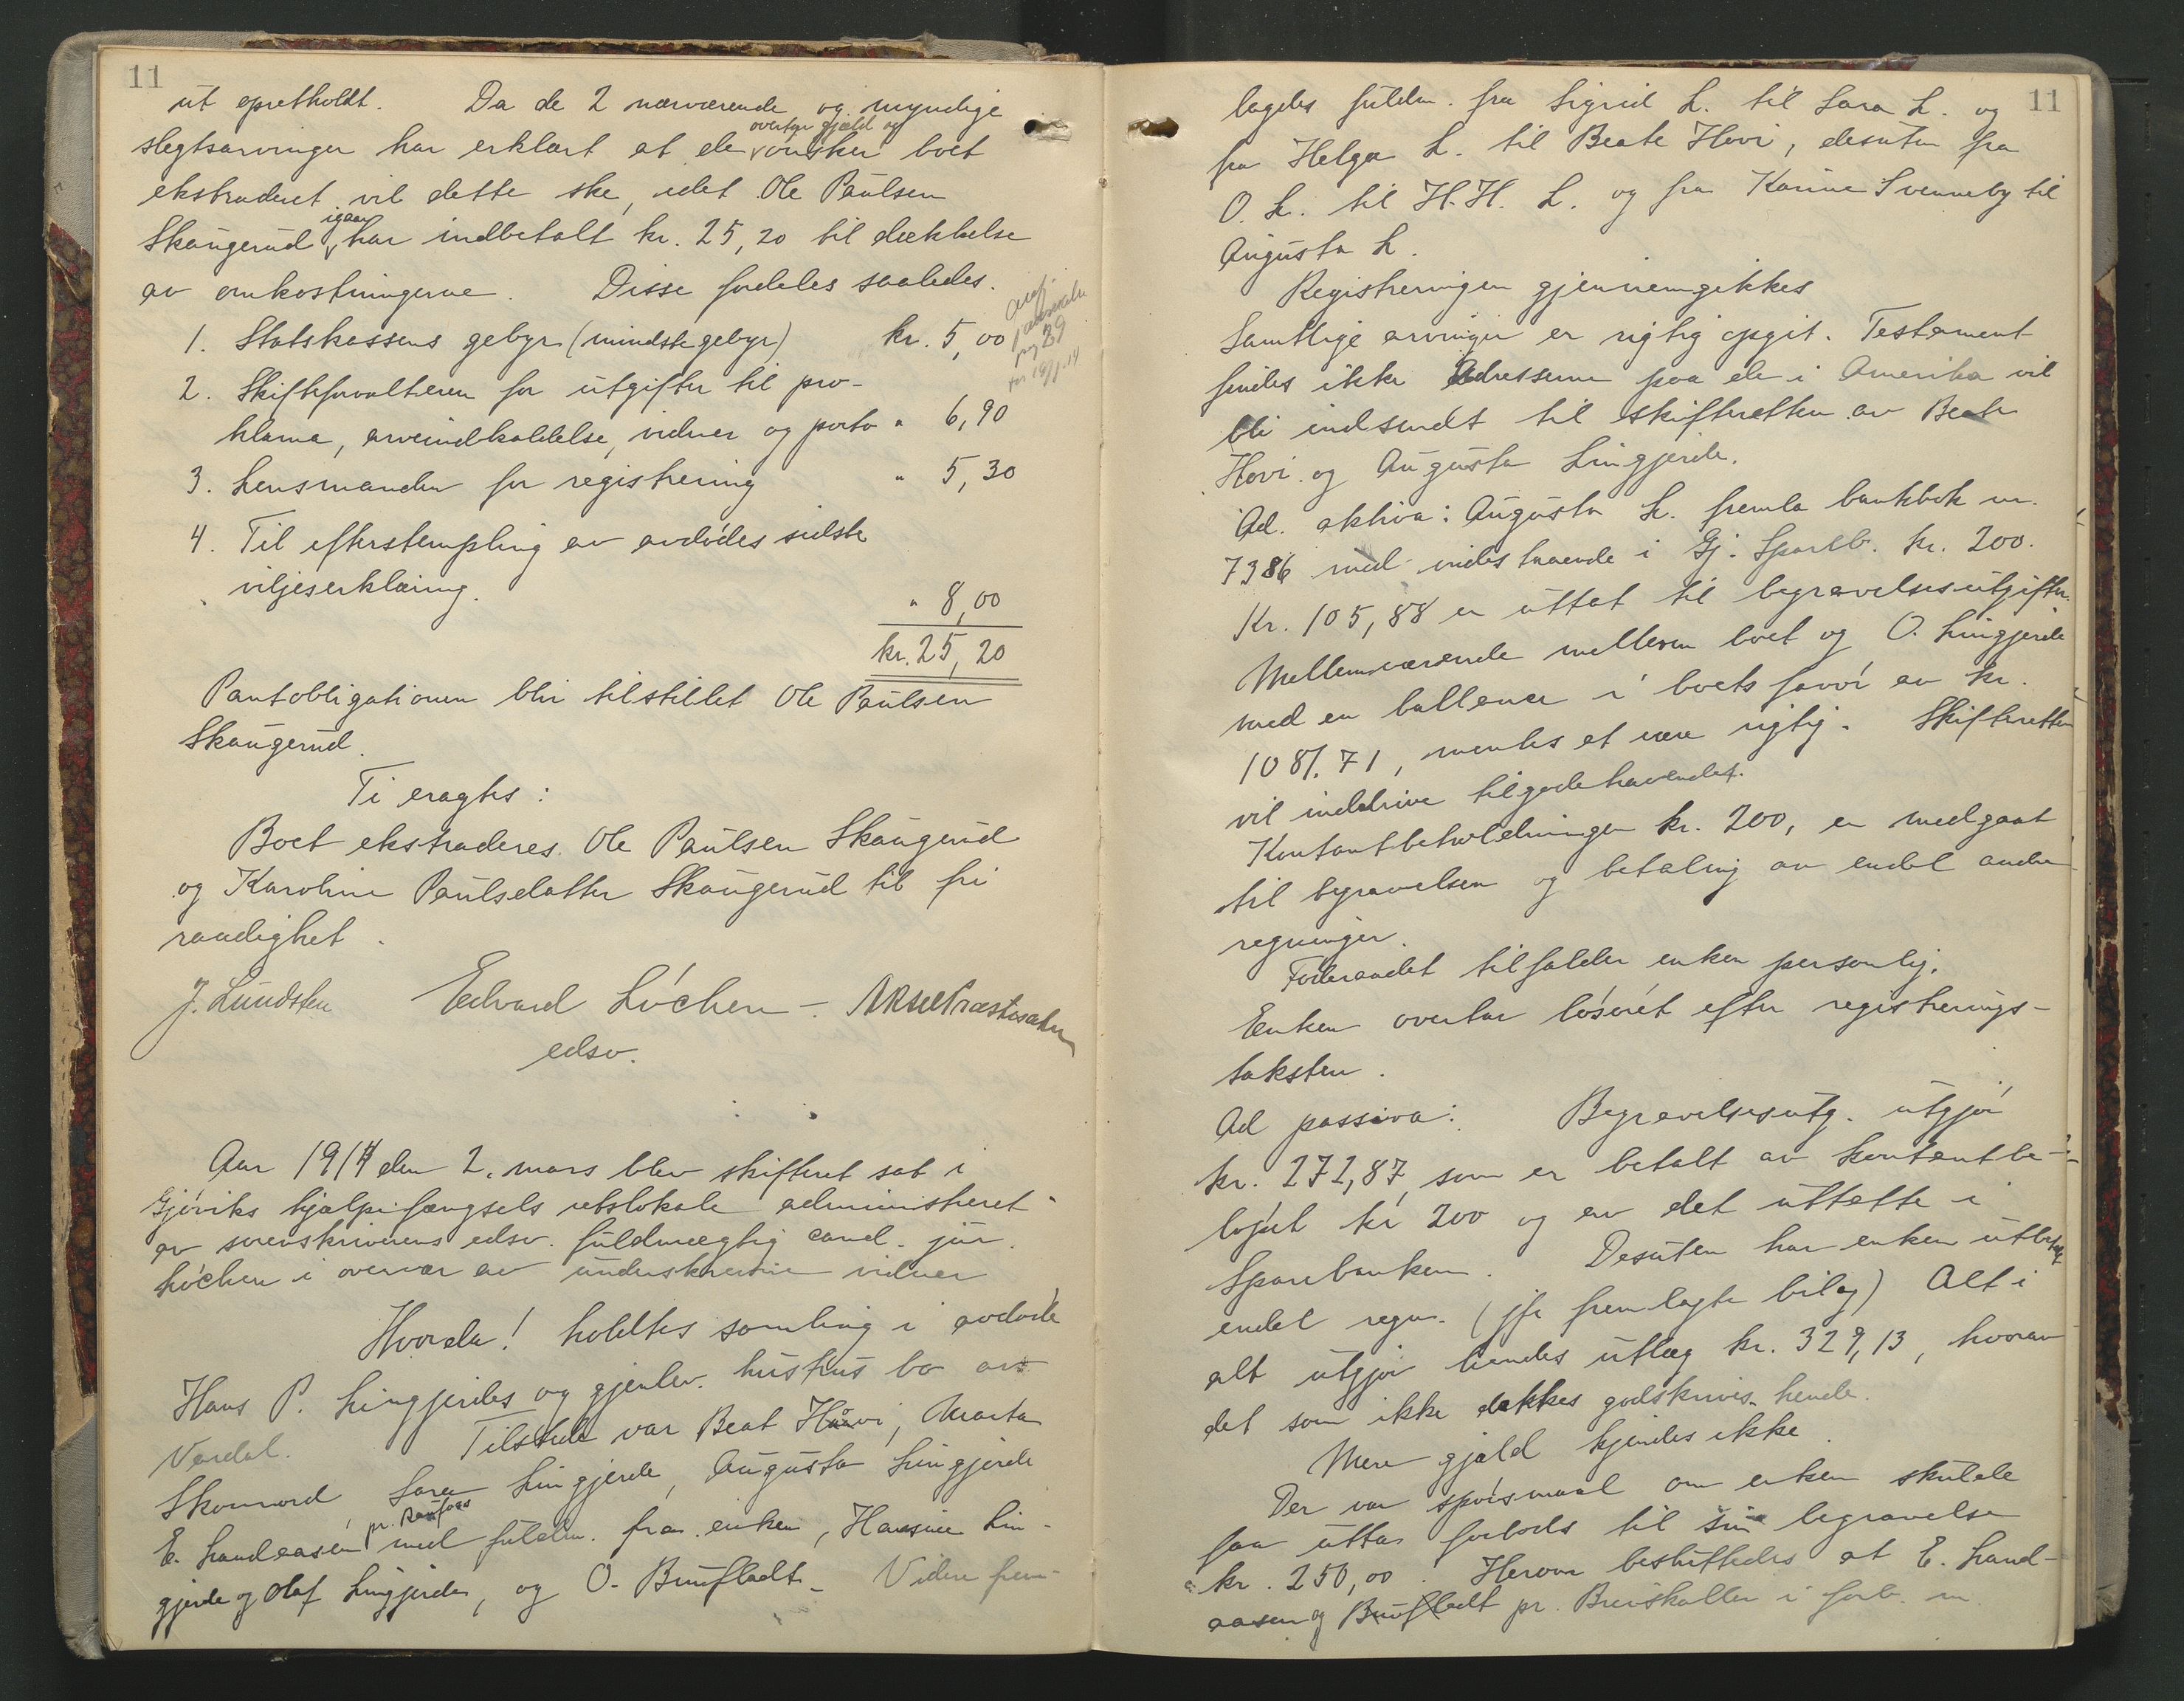 11
ut opretholdt. Da de 2 nærværende og myndige
overtar gjæld og
slegtsarvinger har erklært at de ønsker boet
ekstraderet vil dette ske, idet Ole Paulsen
igaar
Skaugerud har indbetalt kr. 25,20 til dækkelse
av omkostningerne. Disse fordeles saaledes.
1. Statskassens gebyr (mindstegebyr) kr. 5,00
2. Skifteforvalteren for utgifter til pro-
klama, arveindkaldelse, vidner og porto " 6,90
3. Lensmanden for registrering " 5,30
4. Til efterstempling av avdødes sidste
viljeserklæring.
" 8,00
kr. 25,20
Pantobligationen blir tilstillet Ole Paulsen
Skaugerud.
Ti eragtes:
Boet ekstraderes Ole Paulsen Skaugerud
og Karoline Paulsdatter Skaugerud til fri
raadighet.
J. Lundsten Edvard Løchen - Aksel Præstesæter
edsv.
Aar 1914 den 2. mars blev skifteret sat i
Gjøviks hjælpefængsels retslokale administreret
av sorenskriverens edsv. fuldmægtig cand. jur.
Løchen i overvær av underskrevne vidner
Hvorda! holdtes samling i avdøde
Hans P. Lingjerdes og gjenlev. hustrus bo av
Vardal. Tilstede var Beat Hovi, Marta
Skonnord, Sara Lingjerde, Augusta Lingjerde
pr. Raufoss
E. Landaasen med fuldm. fra enken, Hansine Lin-
gjerde og Olaf Lingjerde, og O. Brufladt. Videre frem-
11
lagdes fuldm. fra Sigrid L. til Sara L. og
fra Helga L. til Beate Hovi, desuten fra
O. L. til H.H. L. og fra Karine Svenneby til
Augusta L.
Registreringen gjennemgikkes
Samtlige arvinger er rigtig opgit. Testament
findes ikke Adresserne paa de i Amerika vil
bli indsendt til skifteretten av Beate
Hovi og Augusta Lingjerde.
Ad. aktiva: Augusta L. fremla bankbok nr.
7386 med indestaaende i Gj. Spareb. kr. 200.
Kr. 105,88 er uttat til begravelsesutgifter.
Mellemværende mellem boet og O. Lingjerde
med en ballence i boets favør av kr.
1081.71, mentes at være rigtig. Skifteretten
vil inddrive tilgodehavendet.
Kontantbeholdningen kr. 200, er medgaat
til begravelsen og betaling av endel andre
regninger.
Føderaadet tilfalder enken personlig.
Enken overtar løsøret efter registrerings-
taksten.
Ad passiva: Begravelsesutg. utgjør
kr. 272,87, som er betalt av kontantbe-
løpet kr 200 og av det uttatte i
Sparebanken. Desuten har enken utbetalt
endel regn. (jfr fremlagte bilag) Alt i
alt utgjør hendes utlæg kr. 329,13, hvorav
det som ikke dækkes godskrives hende.
Mere gjæld kjendes ikke.
Der var spørsmaal om enken skulde
faa uttat forlods til sin begravelse
kr. 250,00. Herom besluttedes at E. Land-
aasen og Brufladt pr. Breiskallen i forb. m.